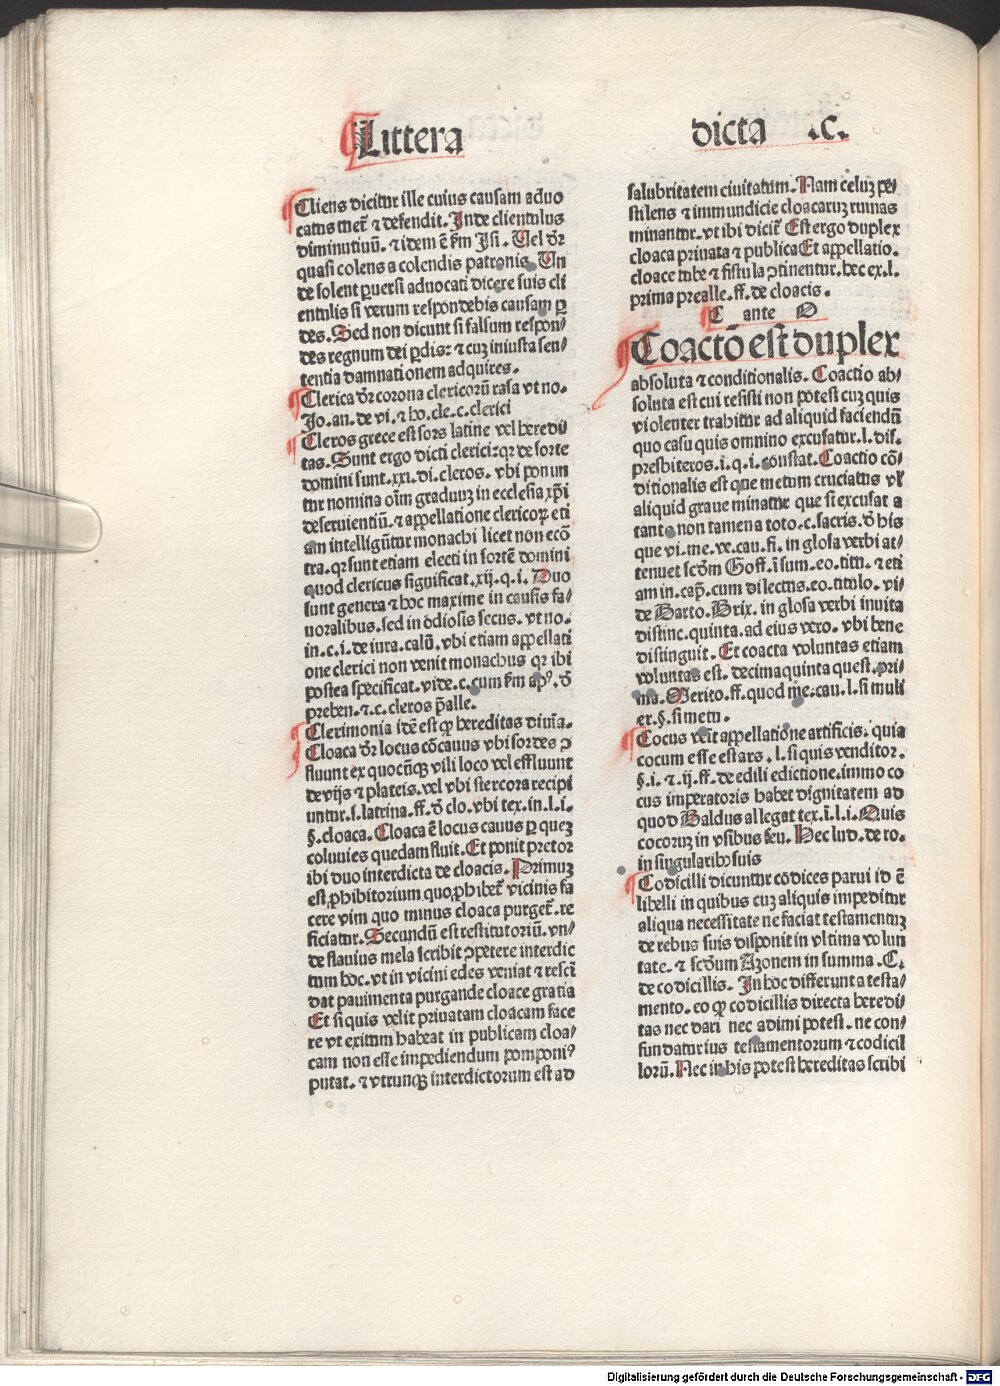 Littera dicta .c.
Cliens dicitur ille cuius causam aduo
catus tuet᷑ ⁊ defendit. Inde clientulus
diminutiuū. ⁊ idem ē ẜm Isi. Uel dr̄
quasi colens a colendis patronis. Un
de solent ꝑuersi aduocati dicere suis cli
entulis si verum respondebis causam ꝑ
des. Sed non dicunt si falsum respon/
des regnum dei ꝑdis: ⁊ cuz iniusta sen/
tentia damnationem adquires.
Clerica dr̄ corona clericorū rasa vt no.
Jo. an. de vi. ⁊ ho. cle. c. clerici
Cleros grece est sors latine vel heredi
tas. Sunt ergo dicti clerici: qꝛ de sorte
domini sunt. xxi. di. cleros. vbi ponun
tur nomina oīm graduuz in ecclesia xp̄i
deseruientiū. ⁊ appellatione clericoꝝ eti
am intelligūtur monachi licet non ecō
tra. qꝛ sunt etiam electi in sortē domini
quod clericus significat. xij. q. i. Duo
sunt genera ⁊ hoc maxime in causis fa/
uoralibus. sed in odiosis secus. vt no.
in. c. i. de iura. calū. vbi etiam appellati
one clerici non venit monachus qꝛ ibi
postea specificat. vide. c. cum ẜm apꝰ. d̄
preben. ⁊. c. cleros p̄alle.
Clerimonia idē est qꝙ hereditas diuīa.
Cloaca dr̄ locus cōcauus vbi sordes ↄ
fluunt ex quocūqꝫ vili loco vel effluunt
de vijs ⁊ plateis. vel vbi stercora recipi
untur. s. latrina. ff. d̄ clo. vbi tex. in. l. i.
§. cloaca. Cloaca ē locus cauus ꝑ quez
coluuies quedam fluit. Et ponit pretor
ibi duo interdicta de cloacis. Primuz
est ꝓhibitorium quo ꝓhibet᷑ vicinis fa
cere vim quo minus cloaca purget᷑. re
ficiatur. Secundū est restitutoriū. vn/
de flauius mela scribit ↄpetere interdic
tum hoc. vt in vicini edes veniat ⁊ resci
dat pauimenta purgande cloace gratia
Et si quis velit priuatam cloacam face
re vt exitum habeat in publicam cloa/
cam non esse impediendum pomponiꝰ
putat. ⁊ vtrunqꝫ interdictorum est ad
salubritatem ciuitatum. Nam celuz pe/
stilens ⁊ immundicie cloacaruz ruinas
minantur. vt ibi dicit᷑ Est ergo duplex
cloaca priuata ⁊ publica Et appellatio.
cloace tube ⁊ fistula ↄtinentur. hec ex. l.
prima prealle. ff. de cloacis.
C ante O
Coactō est duplex
absoluta ⁊ conditionalis. Coactio ab/
soluta est cui resisti non potest cuz quis
violenter trahitur ad aliquid faciendū
quo casu quis omnino excusatur. l. dis.
presbiteros. i. q. i. constat. Coactio cō/
ditionalis est que metum cruciatus vl̄
aliquid graue minatur que si excusat a
tanto non tamen a toto. c. sacris. d̄ his
que vi. me. ve. cau. fi. in glosa verbi at/
tenuet scd̄m Goff. ī sum. eo. titu. ⁊ eti
am in. cap̄. cum dilectus. eo. titulo. vi/
de Barto. Brix. in glosa verbi inuita
distinc. quinta. ad eius vero. vbi bene
distinguit. Et coacta voluntas etiam
voluntas est. decimaquinta quest. pri/
ma. Merito. ff. quod me. cau. l. si muli
er. §. si metu.
Cocus veīt appellatione artificis. quia
cocum esse est ars. l. si quis venditor.
§. i. ⁊. ij. ff. de edili edictione. immo co
cus imperatoris habet dignitatem ad
quod Baldus allegat tex. ī. l. i. Quis
cocoruz in vsibus feu. Hec lud. de ro.
in singularibꝫ suis
Codicilli dicuntur codices parui id ē
libelli in quibus cuz aliquis impeditur
aliqua necessitate ne faciat testamentuz
de rebus suis disponit in vltima volun
tate. ⁊ scd̄um Azonem in summa. C.
de codicillis. In hoc differunt a testa/
mento. eo qꝙ codicillis directa heredi/
tas nec dari nec adimi potest. ne con/
fundatur ius testamentorum ⁊ codicil
lorū. Nec in his potest hereditas scribi
Digitalisierung gefördert durch die Deutsche Forschungsgemeinschaft - DFG